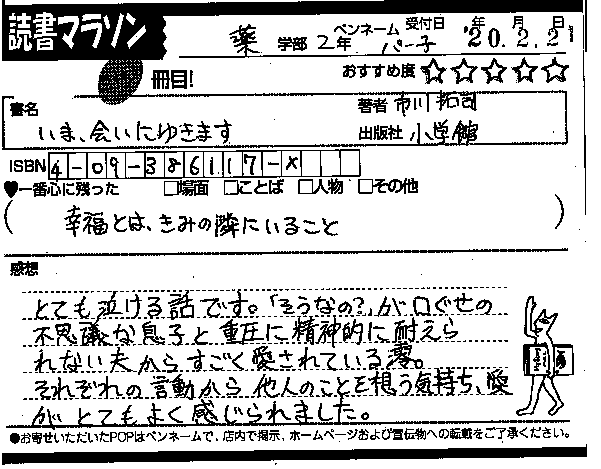 読書マラソン
薬 学部 2年 ペンネーム パー子 受付日 '20年.2月.21日
冊目!
おすすめ度 ☆☆☆☆☆
書名 いま、会いにゆきます
著者 市川拓司
出版社 小学館
ISBN 4-09-386117-X
♥一番心に残った □場面 □ことば □人物 □その他
(幸福とは、きみの隣にいること)
感想
とても泣ける話です。「そうなの?」が口ぐせの
不思議な息子と重圧に精神的に耐えら
れない夫からすごく愛されている澪。
それぞれの言動から他人のことを想う気持ち、愛
がとてもよく感じられました。
●お寄せいただいたPOPはペンネームで、店内で掲示、ホームページおよび宣伝物への転載をご了承ください。